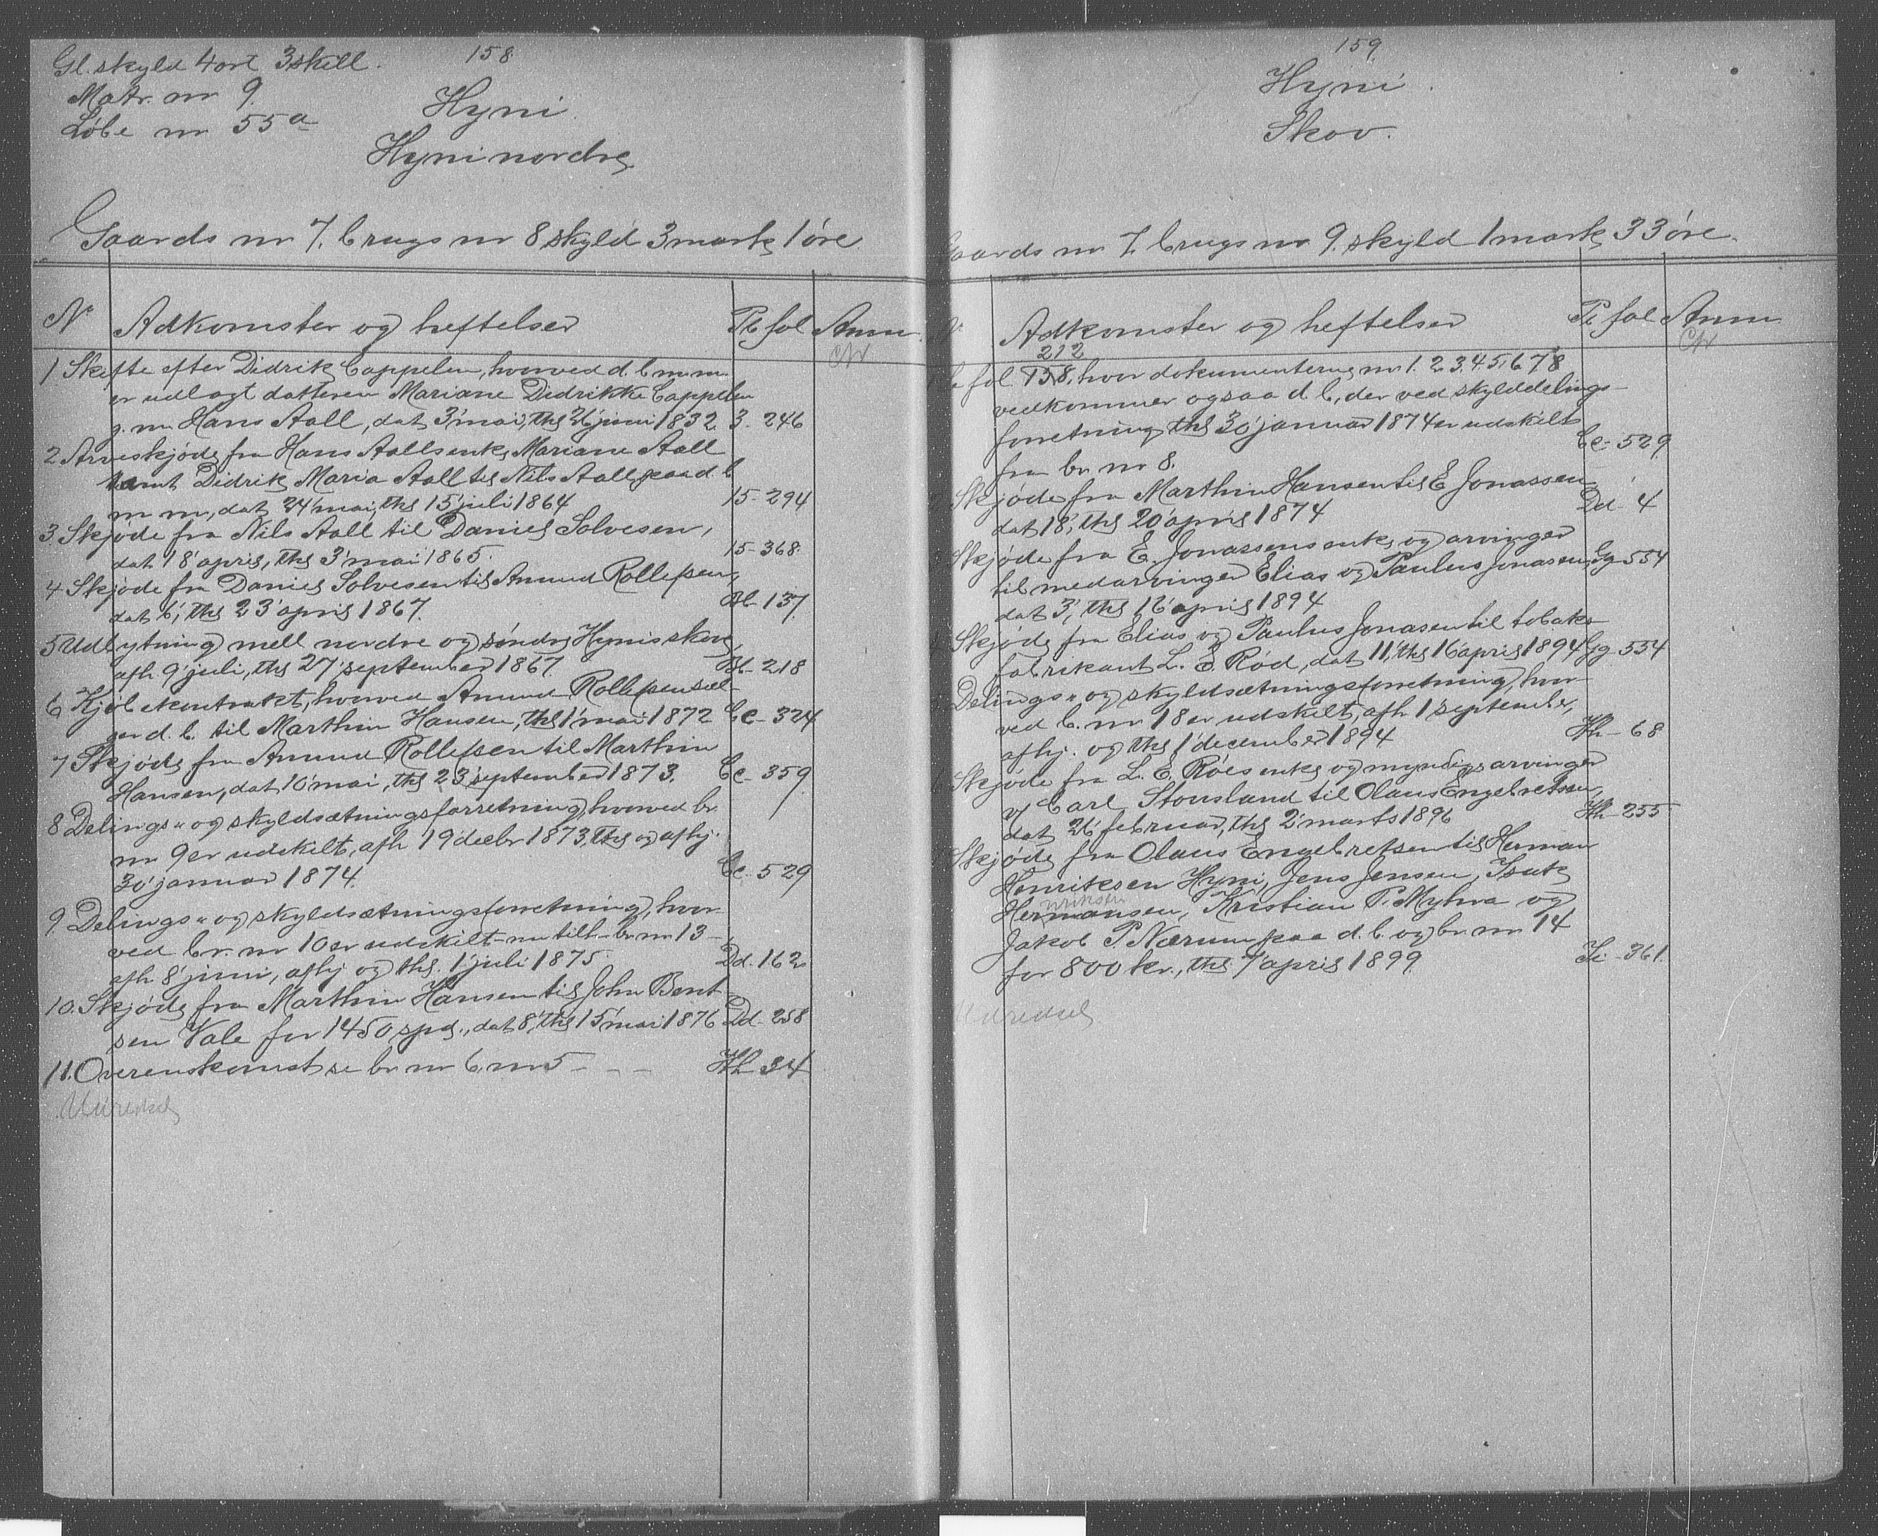 158.
Gl. skyld 4 ort 3 skill.
Matr. nr 9.
Løbe nr 55a
Hyni.
Hyni nordre
Gaards nr 7. brugs nr 8 skyld 3 mark 1 øre
Nr Adkomster og heftelser Pb fol Anm.
1 Skifte efter Didrik Cappelen, hvorved d. b. m. m.
er udlagt datteren Mariane Didrikke Cappelen
g. m. Hans Aall, dat 3' mai, thl 26' juni 1832 3 - 246
2 Arveskjøde fra Hans Aalls enke Mariane Aall
samt Didrik Maria Aall til Nils Aall paa d. b
m m, dat 24' mai, thl 15' juli 1864 15 - 294
3 Skjøde fra Nils Aall til Daniel Solvesen,
dat 18' april, thl 3' mai 1865. 15 - 368
4 Skjøde fra Daniel Solvesen til Amund Rollefsen,
dat 6', thl 23' april 1867. Bb - 137.
5 Udbytning mell nordre og søndre Hynis skove
afh 9' juli, thl 27' september 1867. Bb - 218
6 Kjøbekontrakt, hvorved Amund Rollefsen sæl-
ger d. b. til Marthin Hansen, thl 1' mai 1872 Cc - 324
7 Skjøde fra Amund Rollefsen til Marthin
Hansen, dat 10' mai, thl 23' september 1873. Cc - 359
8 Delings- og skyldsætningsforretning, hvorved br.
nr 9 er udskilt, afh 19' decbr 1873, thl og afhj.
30' januar 1874. Cc - 529
9. Delings- og skyldsætningsforretning, hvor-
ved br. nr 10 er udskilt - nu till - br. nr 13 -
afh 8' juni, afhj og thl. 1' juli 1875. Dd - 162
10. Skjøde fra Marthin Hansen til John Bent-
sen Vale for 1450 spd., dat 8', thl 15' mai 1876 Dd - 258
11. Overenskomst se br nr 6. nr 5 - - - Hh - 34
159.
Hyni.
Skov.
Gaards nr 7. brugs nr 9. skyld 1 mark 33 øre.
Nr Adkomster og heftelser Pb fol Anm
212
fol 158, hvor dokumenterne nr 1. 2. 3. 4. 5. 6. 7. 8
vedkommer ogsaa d b, der ved skylddelings-
forretning thl 30' januar 1874 er udskilt
fra br nr 8. Cc - 529
Skjøde fra Marthin Hansen til E Jonassen
dat 18', thl 20' april 1874 Dd - 4
Skjøde fra E. Jonassens enke og arvinger
til medarvinger Elias og Paulus Jonasen, Gg - 554
dat 3', thl 16' april 1894
Skjøde fra Elias og Paulus Jonasen til tobaks-
fabrikant L. E. Rød, dat 11', thl 16' april 1894 Gg - 554
Delings- og skyldsætningsforretning, hvor-
ved b. nr 18 er udskilt, afh 1' september,
afhj. og thl 1' december 1894 Hh - 68
Skjøde fra L. E. Røds enke og myndige arvinger
v/ Carl Stousland til Olaus Engebretsen,
dat 26' februar, thl 2' marts 1896 Hh - 255
Skjøde fra Olaus Engebretsen til Herman
Henriksen Hyni, Jens Jensen, Isak
Hermansen, Kristian P. Myhra og
Jakob P Nærum paa d. b. og br. nr. 14
for 800 kr., thl 7' april 1899. Ii - 361